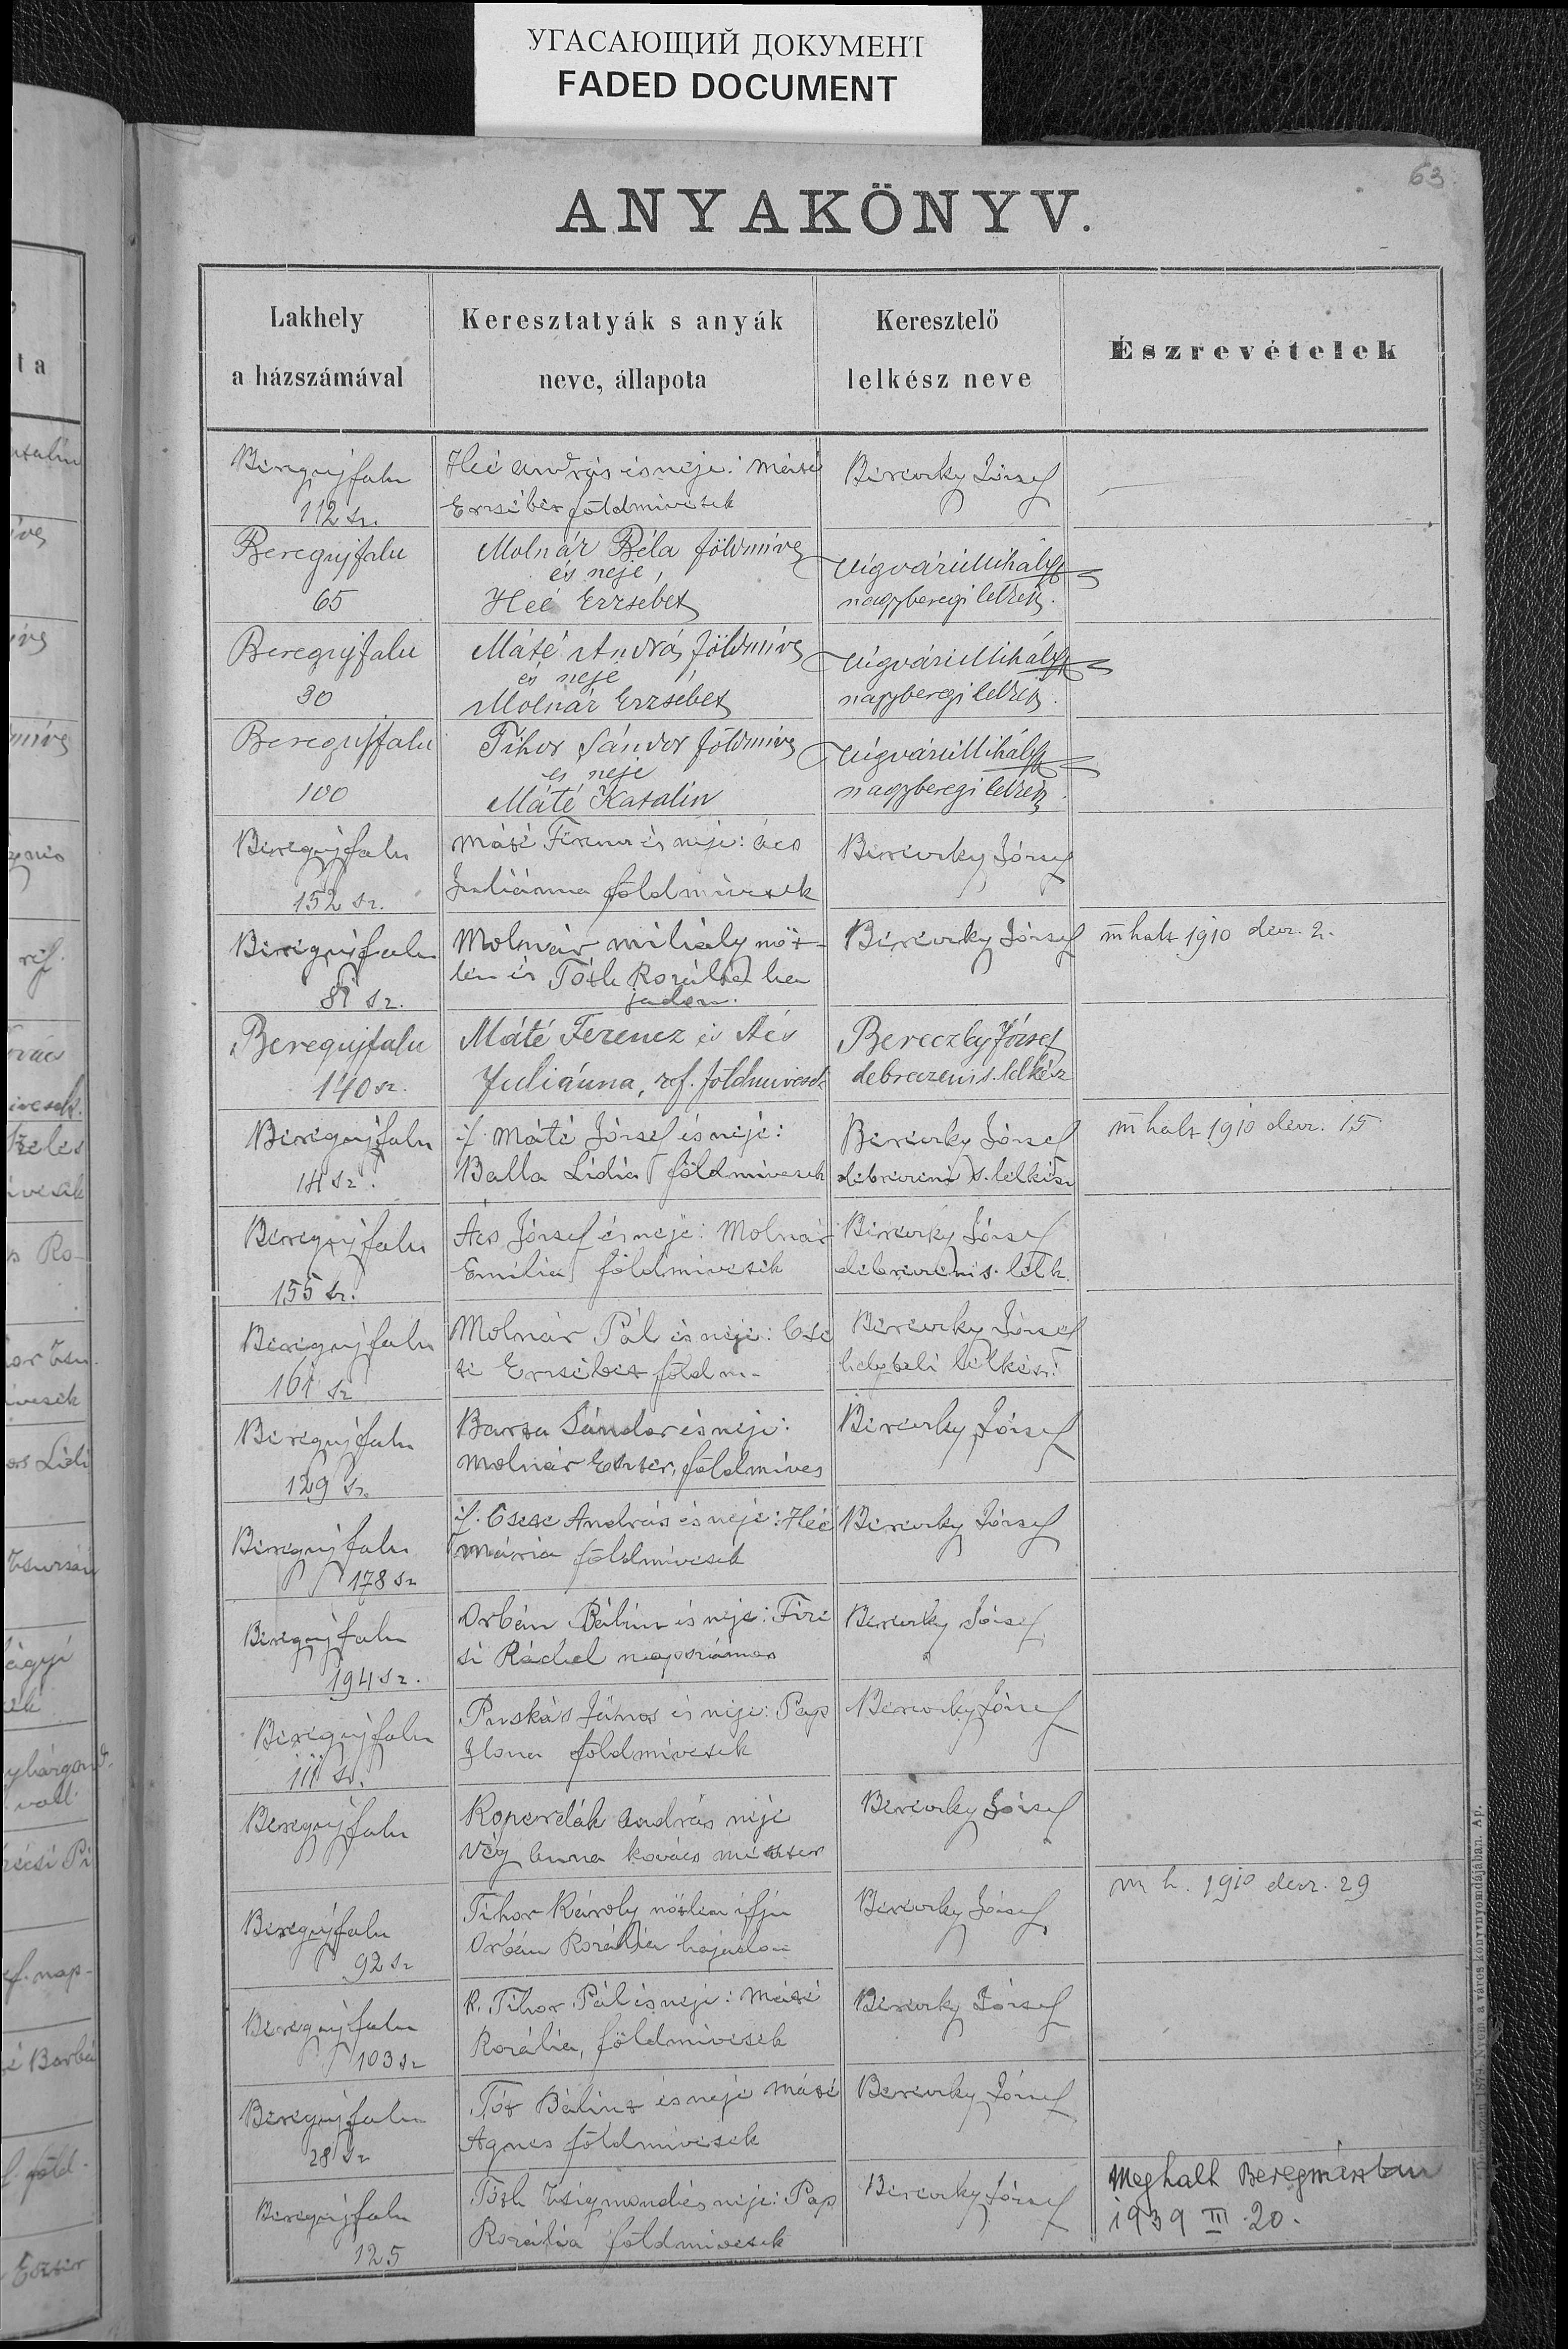 УГАСАЮЩИЙ ДОКУМЕНТ
FADED DOCUMENT
63
ANYAKÖNYV.
Lakhely
a házszámával
Keresztatyák s anyák
neve, állapota
Keresztelő
lelkész neve
Észrevételek
Beregujfalu
112 sz.
Heé András és neje: Máté
Erzsébet földmivesek
Bereczky József
Beregujfalu
65
Molnár Béla földmíves
és neje,
Heé Erzsebet
Vígvári Mihály
nagyberegi lelkész.
Beregujfalu
30
Máté András földmíves
és neje
Molnár Erzsébet
Vígvári Mihály
nagyberegi lelkész.
Beregujfalu
100
Tihor Sándor földmíves
és neje
Máté Katalin
Vígvári Mihály
nagyberegi lelkész.
Beregujfalu
152 sz.
Máté Ferencz és neje: Ács
Juliánna földmivesek
Bereczky József
Beregujfalu
81 sz.
Molnár Mihály nőt-
len és Tóth Rozália ha
jadon.
Bereczky József
mhalt 1910 decz. 2.
Beregujfalu
140 sz.
Máté Ferencz és Ács
Juliánna, ref. földmivesek
Bereczky József
debreczeni s. lelkész
Beregujfalu
14 sz.
if. Máté József és neje:
Balla Lidia földmivesek
Bereczky József
debreczeni s. lelkész
mhalt 1910 decz. 15
Beregujfalu
155 sz.
Ács József és neje: Molnár
Emilia földmivesek
Bereczky József
debreczeni s. lelk.
Beregujfalu
161 sz
Molnár Pál és neje: Cse
te Erzsébet földm.
Bereczky József
helybeli lelkész.
Beregujfalu
129 sz.
Barta Sándor és neje:
Molnár Eszter, földmíves
Bereczky József
Beregujfalu
178 sz
if. Csete András és neje: Heé
Mária földmivesek
Bereczky József
Beregujfalu
194 sz.
Orbán Bálint és neje: Füze
si Ráchel napszámos
Bereczky József
Beregujfalu
111 sz.
Puskás János és neje: Pap
Ilona földmivesek
Bereczky József
Beregujfalu
Koperdák András neje
Vég Anna kovács mester
Bereczky József
Beregujfalu
92 sz
Tihor Károly nőtlen ifju
Orbán Rozália hajadon
Bereczky József
m h. 1910 decz. 29
Beregujfalu
103 sz
K. Tihor Pál és neje: Máté
Rozália, földmivesek
Bereczky József
Beregujfalu
28 sz
Tót Bálint és neje Máté
Agnes földmivesek
Bereczky József
Beregujfalu
125
Tóth Zsigmond és neje: Pap
Rozália földmivesek
Bereczky József
Meghalt
1939 III. 20.
Debreczen 1874. Nyom. a város könyvnyomdájában. Ap.